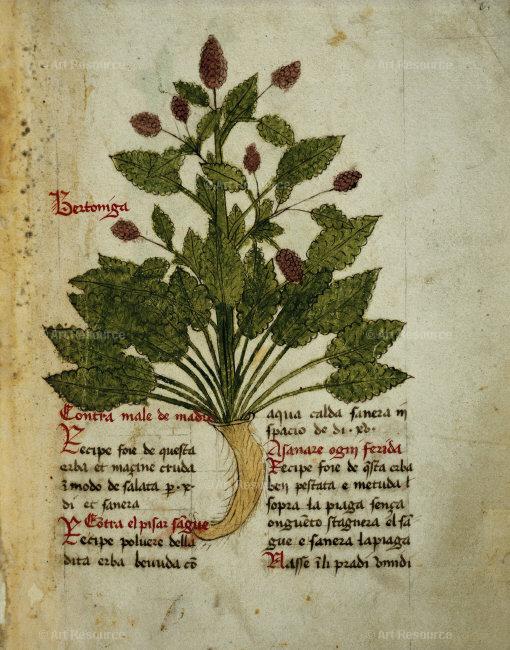 Bertoniga
Contra male de madre
Recipe foie de questa
erba et magine cruda
i modo de salata p. x.
di et sanera
Cotra el pisar sague
Recipe poluere della
dita erba beuuda co
aqua calda sanera in
spacio de di. xv.
A sanare ogni ferida
Recipe foie de qsta erba
ben pestata e metuda l
sopra la piaga senza
ongueto stagnera el sa
gue e sanera la piaga
Nasse i li pradi
© Art Resource